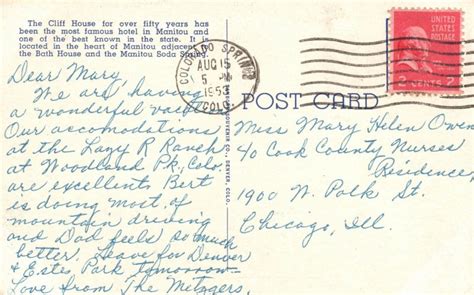 The Cliff House for over fifty years has
been the most famous hotel in Manitou and
one of the best known in the state. It
is located in the heart of Manitou adjacent
the Bath House and the Manitou Soda
Dear Mary,
We are having
a wonderful
Our accomodations
at the Lazy R Ranch
at Woodland Pk, Colo.
are excellent. Bert
is doing most of
mountain driving
and Dad feels so much
better. Leave for Denver
& Estes Park tomorrow
Love from The Metzgers
COLORADO SPRINGS
AUG 15
5 PM
1953
COLO.
POST CARD
UNITED STATES
POSTAGE
2 CENTS 2
Miss Mary Helen Owen
c/o Cook County Nurses
Residence,
1900 W. Polk St.
Chicago, Ill.